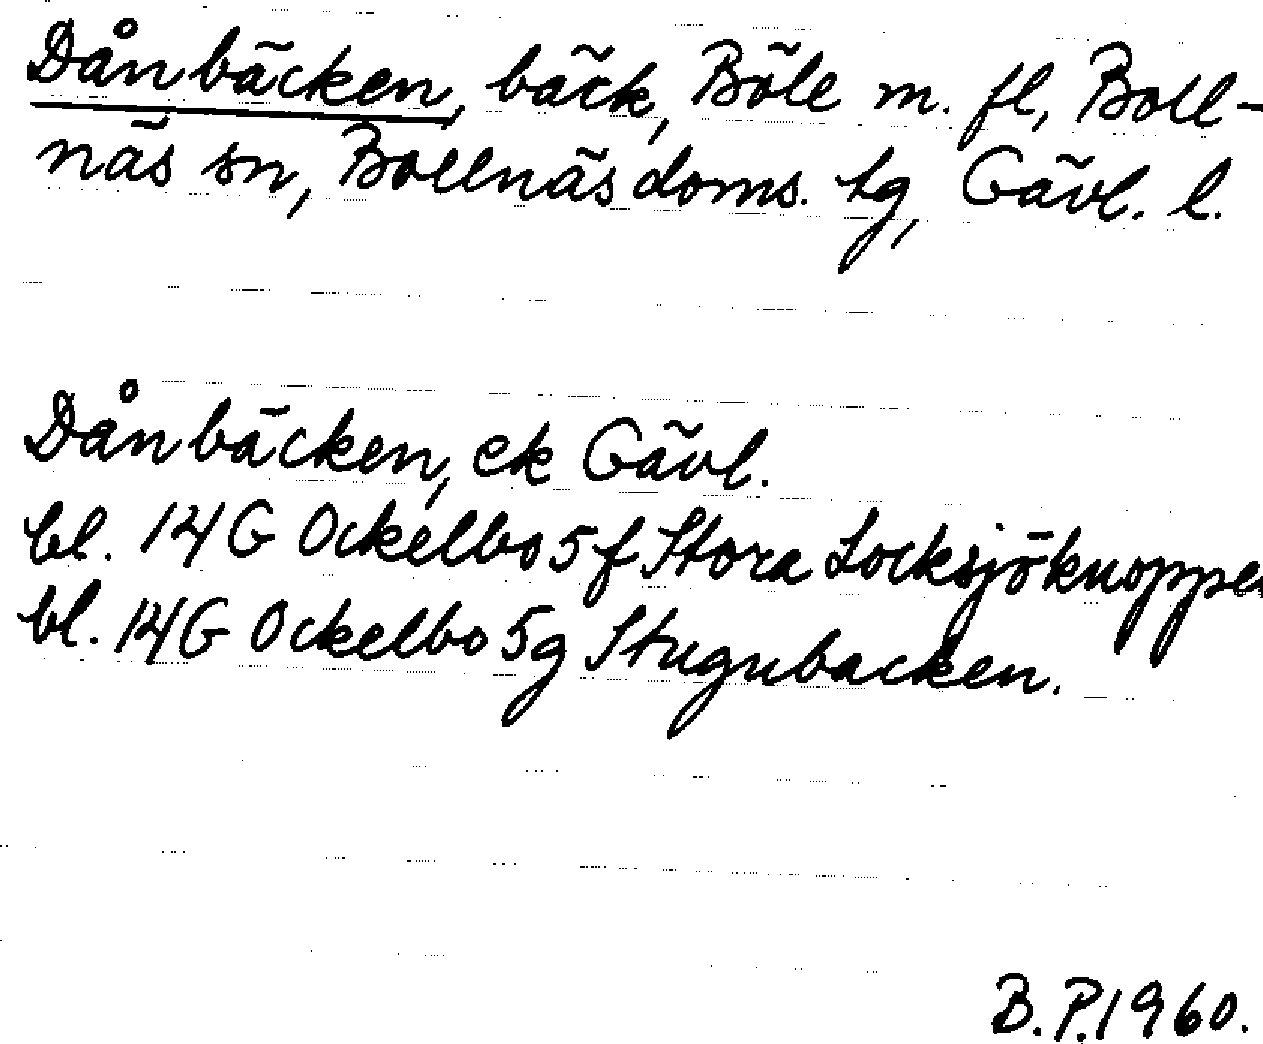 Dånbäcken, bäck, Böle m. fl, Boll-
näs sn, Bollnäs doms. tg, Gävl. l.
Dånbäcken, ek Gävl.
bl. 14G Ockelbo 5f Stora Locksjöknoppen
bl. 14G Ockelbo 5g Stugubacken.
B.P.1960.